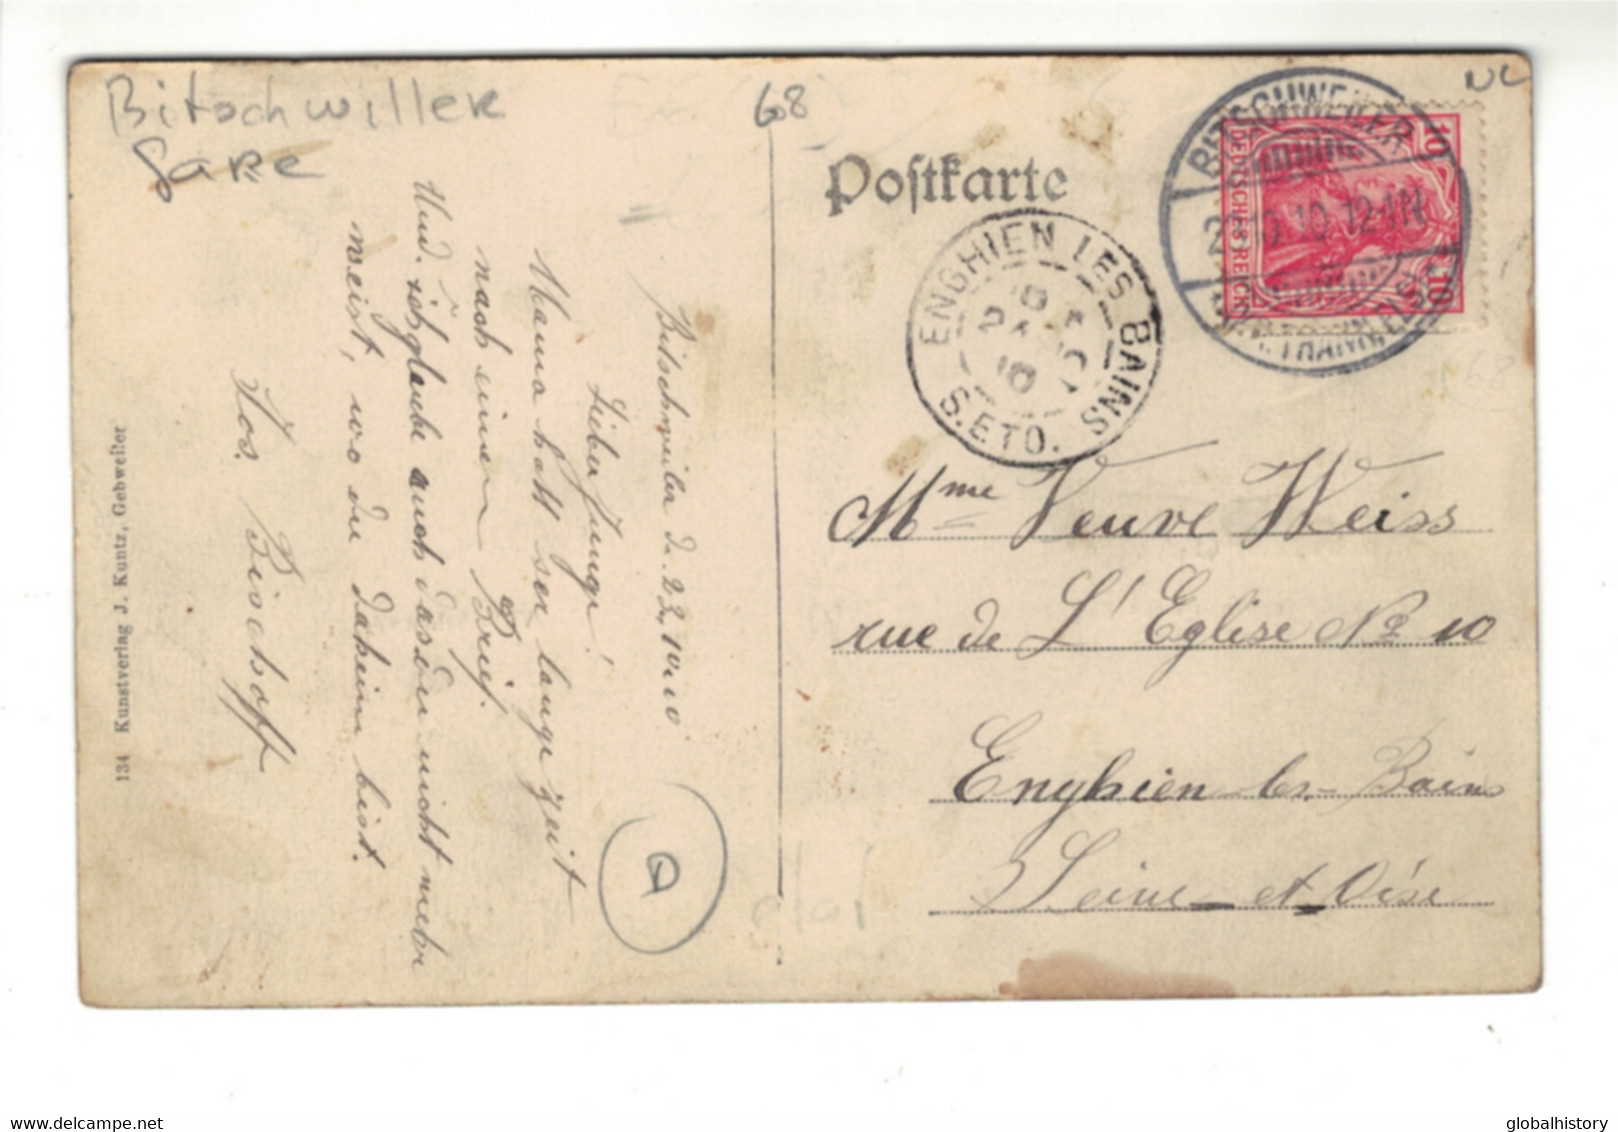 Bitschwiller
Gare
68
NC
Postkarte
BITSCHWEILER
10.10.12-1N
DEUTSCHES REICH
10
10
ENGHIEN LES BAINS
S. ET O.
Bitschweiler d. 22.10.10
Lieber Junge!
Mama hatt ser lange zeit
nach einem Brief.
Und. ich glaube auch das du nicht mehr
weist, wo du daheim bist.
Jos. Bischoff
134 Kunstverlag J. Kuntz, Gebweiler
Mme Veuve Weiss
rue de L'Eglise No 10
Enghien les Bains
Seine et Oise
globalhistory